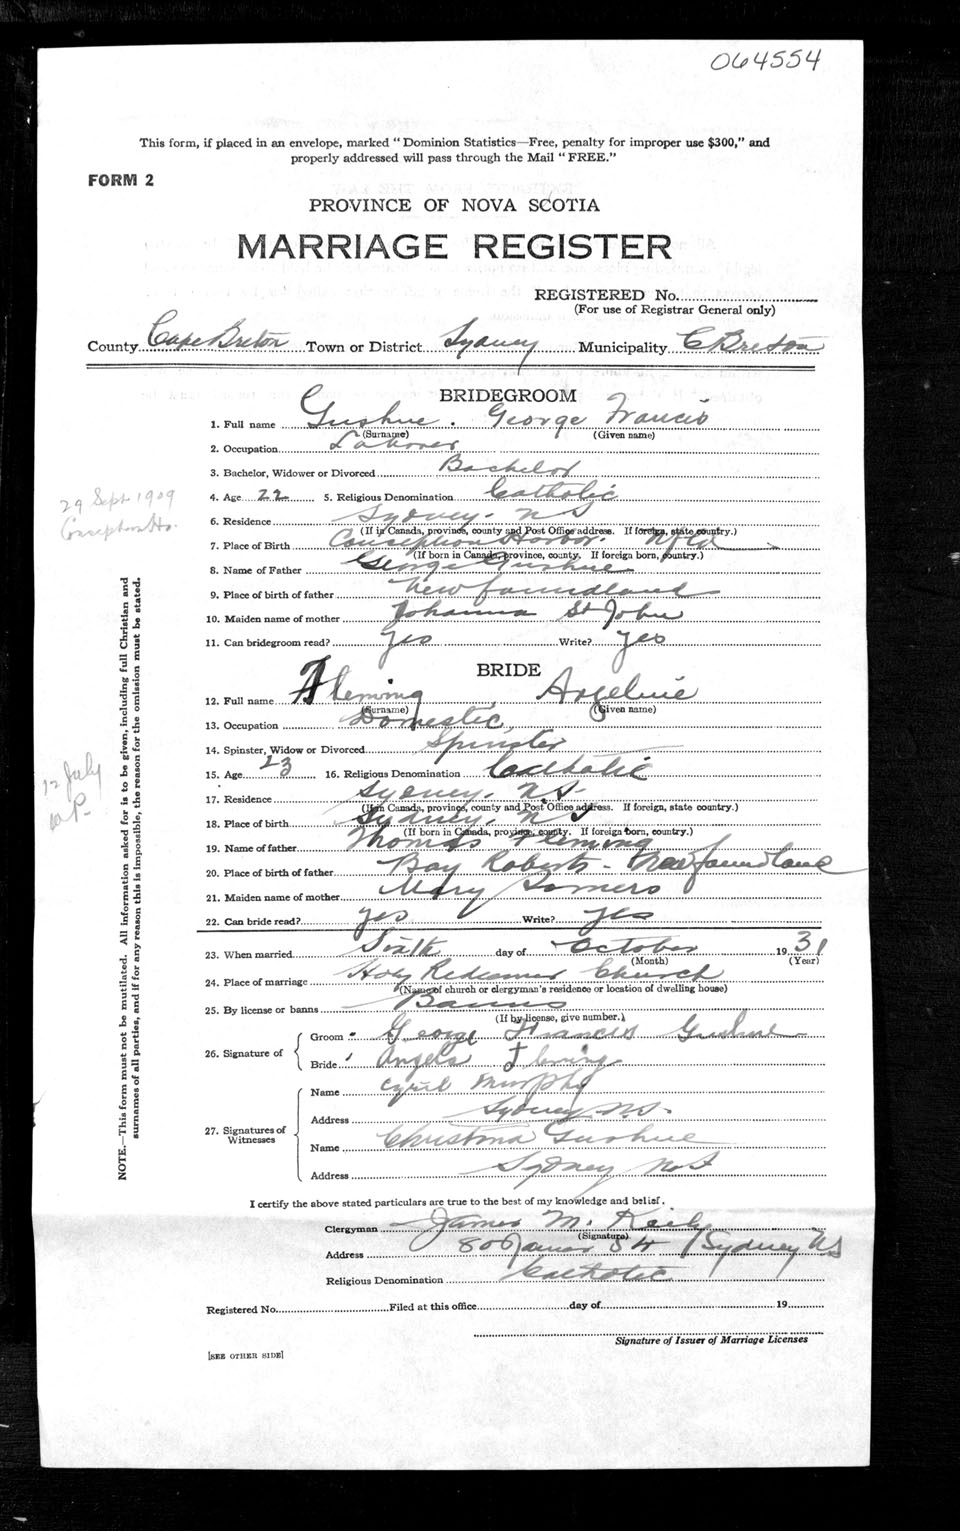 064554
This form, if placed in an envelope, marked "Dominion Statistics—Free, penalty for improper use $300," and
properly addressed will pass through the Mail "FREE."
FORM 2
PROVINCE OF NOVA SCOTIA
MARRIAGE REGISTER
REGISTERED No.
(For use of Registrar General only)
County Cape Breton Town or District Sydney Municipality C Breton
BRIDEGROOM
1. Full name Gushue. George Francis
(Surname) (Given name)
2. Occupation Laborer
3. Bachelor, Widower or Divorced Bachelor
4. Age 22 5. Religious Denomination Catholic
29 Sept 1909
Conception Ho.
6. Residence Sydney. N S
(If in Canada, province, county and Post Office address. If foreign, state country.)
7. Place of Birth Conception Harbor Nfld
(If born in Canada, province, county. If foreign born, country.)
8. Name of Father George Gushue
9. Place of birth of father Newfoundland
10. Maiden name of mother Johanna St John
11. Can bridegroom read? yes Write? yes
BRIDE
12. Full name Fleming Angeline
(Surname) (Given name)
13. Occupation Domestic
14. Spinster, Widow or Divorced Spinster
15. Age 23 16. Religious Denomination Catholic
12 July
17. Residence Sydney. N.S.
(If in Canada, province, county and Post Office address. If foreign, state country.)
18. Place of birth Sydney, N S
(If born in Canada, province, county. If foreign born, country.)
19. Name of father Thomas Fleming
20. Place of birth of father Bay Roberts - Newfoundland
21. Maiden name of mother Mary Somers
22. Can bride read? yes Write? yes
23. When married Sixth day of October 1931
(Month) (Year)
24. Place of marriage Holy Redeemer Church
(Name of church or clergyman's residence or location of dwelling house)
25. By license or banns Banns
(If by license, give number.)
26. Signature of
Groom George Francis Gushue
Bride Angela Fleming
27. Signatures of Witnesses
Name Cyril Murphy
Address Sydney N.S.
Name Christina Gushue
Address Sydney N.S
NOTE.—This form must not be mutilated. All information asked for is to be given, including full Christian and
surnames of all parties, and if for any reason this is impossible, the reason for the omission must be stated.
I certify the above stated particulars are true to the best of my knowledge and belief.
Clergyman James M. Kiely
(Signature)
Address 80 James St Sydney NS
Religious Denomination Catholic
Registered No. Filed at this office day of 19
Signature of Issuer of Marriage Licenses
[SEE OTHER SIDE]